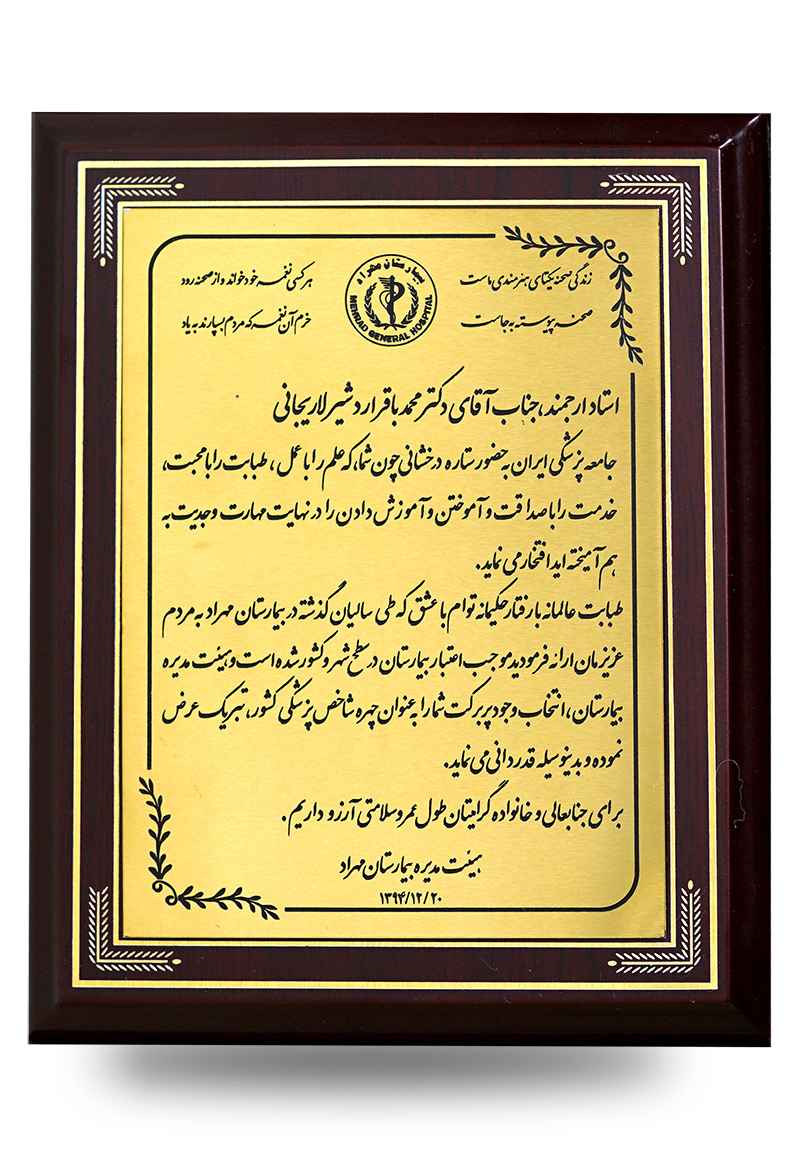 زندگی صحنه یکتای هنرمندی ماست
هر کسی نغمه خود خواند و از صحنه رود
صحنه پیوسته به جاست
خرم آن نغمه که مردم بسپارند به یاد
بیمارستان مهراد
MEHRAD GENERAL HOSPITAL
استاد ارجمند، جناب آقای دکتر محمد باقر اردشیر لاریجانی
جامعه پزشکی ایران به حضور ستاره درخشانی چون شما، که علم را با عمل، طبابت را با محبت،
خدمت را با صداقت و آموختن و آموزش دادن را در نهایت مهارت و جدیت به
هم آمیخته اید افتخار می نماید.
طبابت عالمانه با رفتار حکیمانه توام با عشق که طی سالیان گذشته در بیمارستان مهراد به مردم
عزیزمان ارائه فرمودید موجب اعتبار بیمارستان در سطح شهر و کشور شده است و هیئت مدیره
بیمارستان، انتخاب وجود پر برکت شما را به عنوان چهره شاخص پزشکی کشور، تبریک عرض
نموده و بدینوسیله قدردانی می نماید.
برای جنابعالی و خانواده گرامیتان طول عمر و سلامتی آرزو داریم.
هیئت مدیره بیمارستان مهراد
۱۳۹۴/۱۲/۲۰